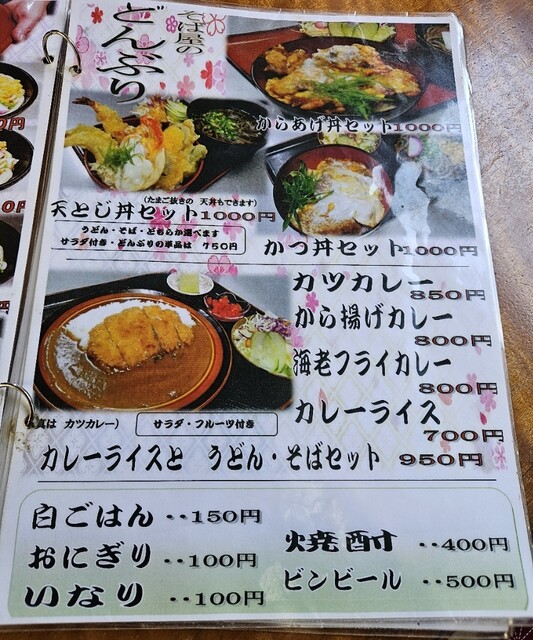 そば屋の
どんぶり
からあげ丼セット1000円
天とじ丼セット1000円
(たまご抜きの 天丼もできます)
うどん・そば・どちらか選べます
サラダ付き・どんぶりの単品は 750円
かつ丼セット1000円
カツカレー
850円
から揚げカレー
800円
海老フライカレー
800円
カレーライス
700円
真は カツカレー)
サラダ・フルーツ付き
カレーライスと うどん・そばセット 950円
白ごはん ・・150円
おにぎり ・・100円
いなり ・・100円
焼酎 ・・400円
ビンビール ・・500円